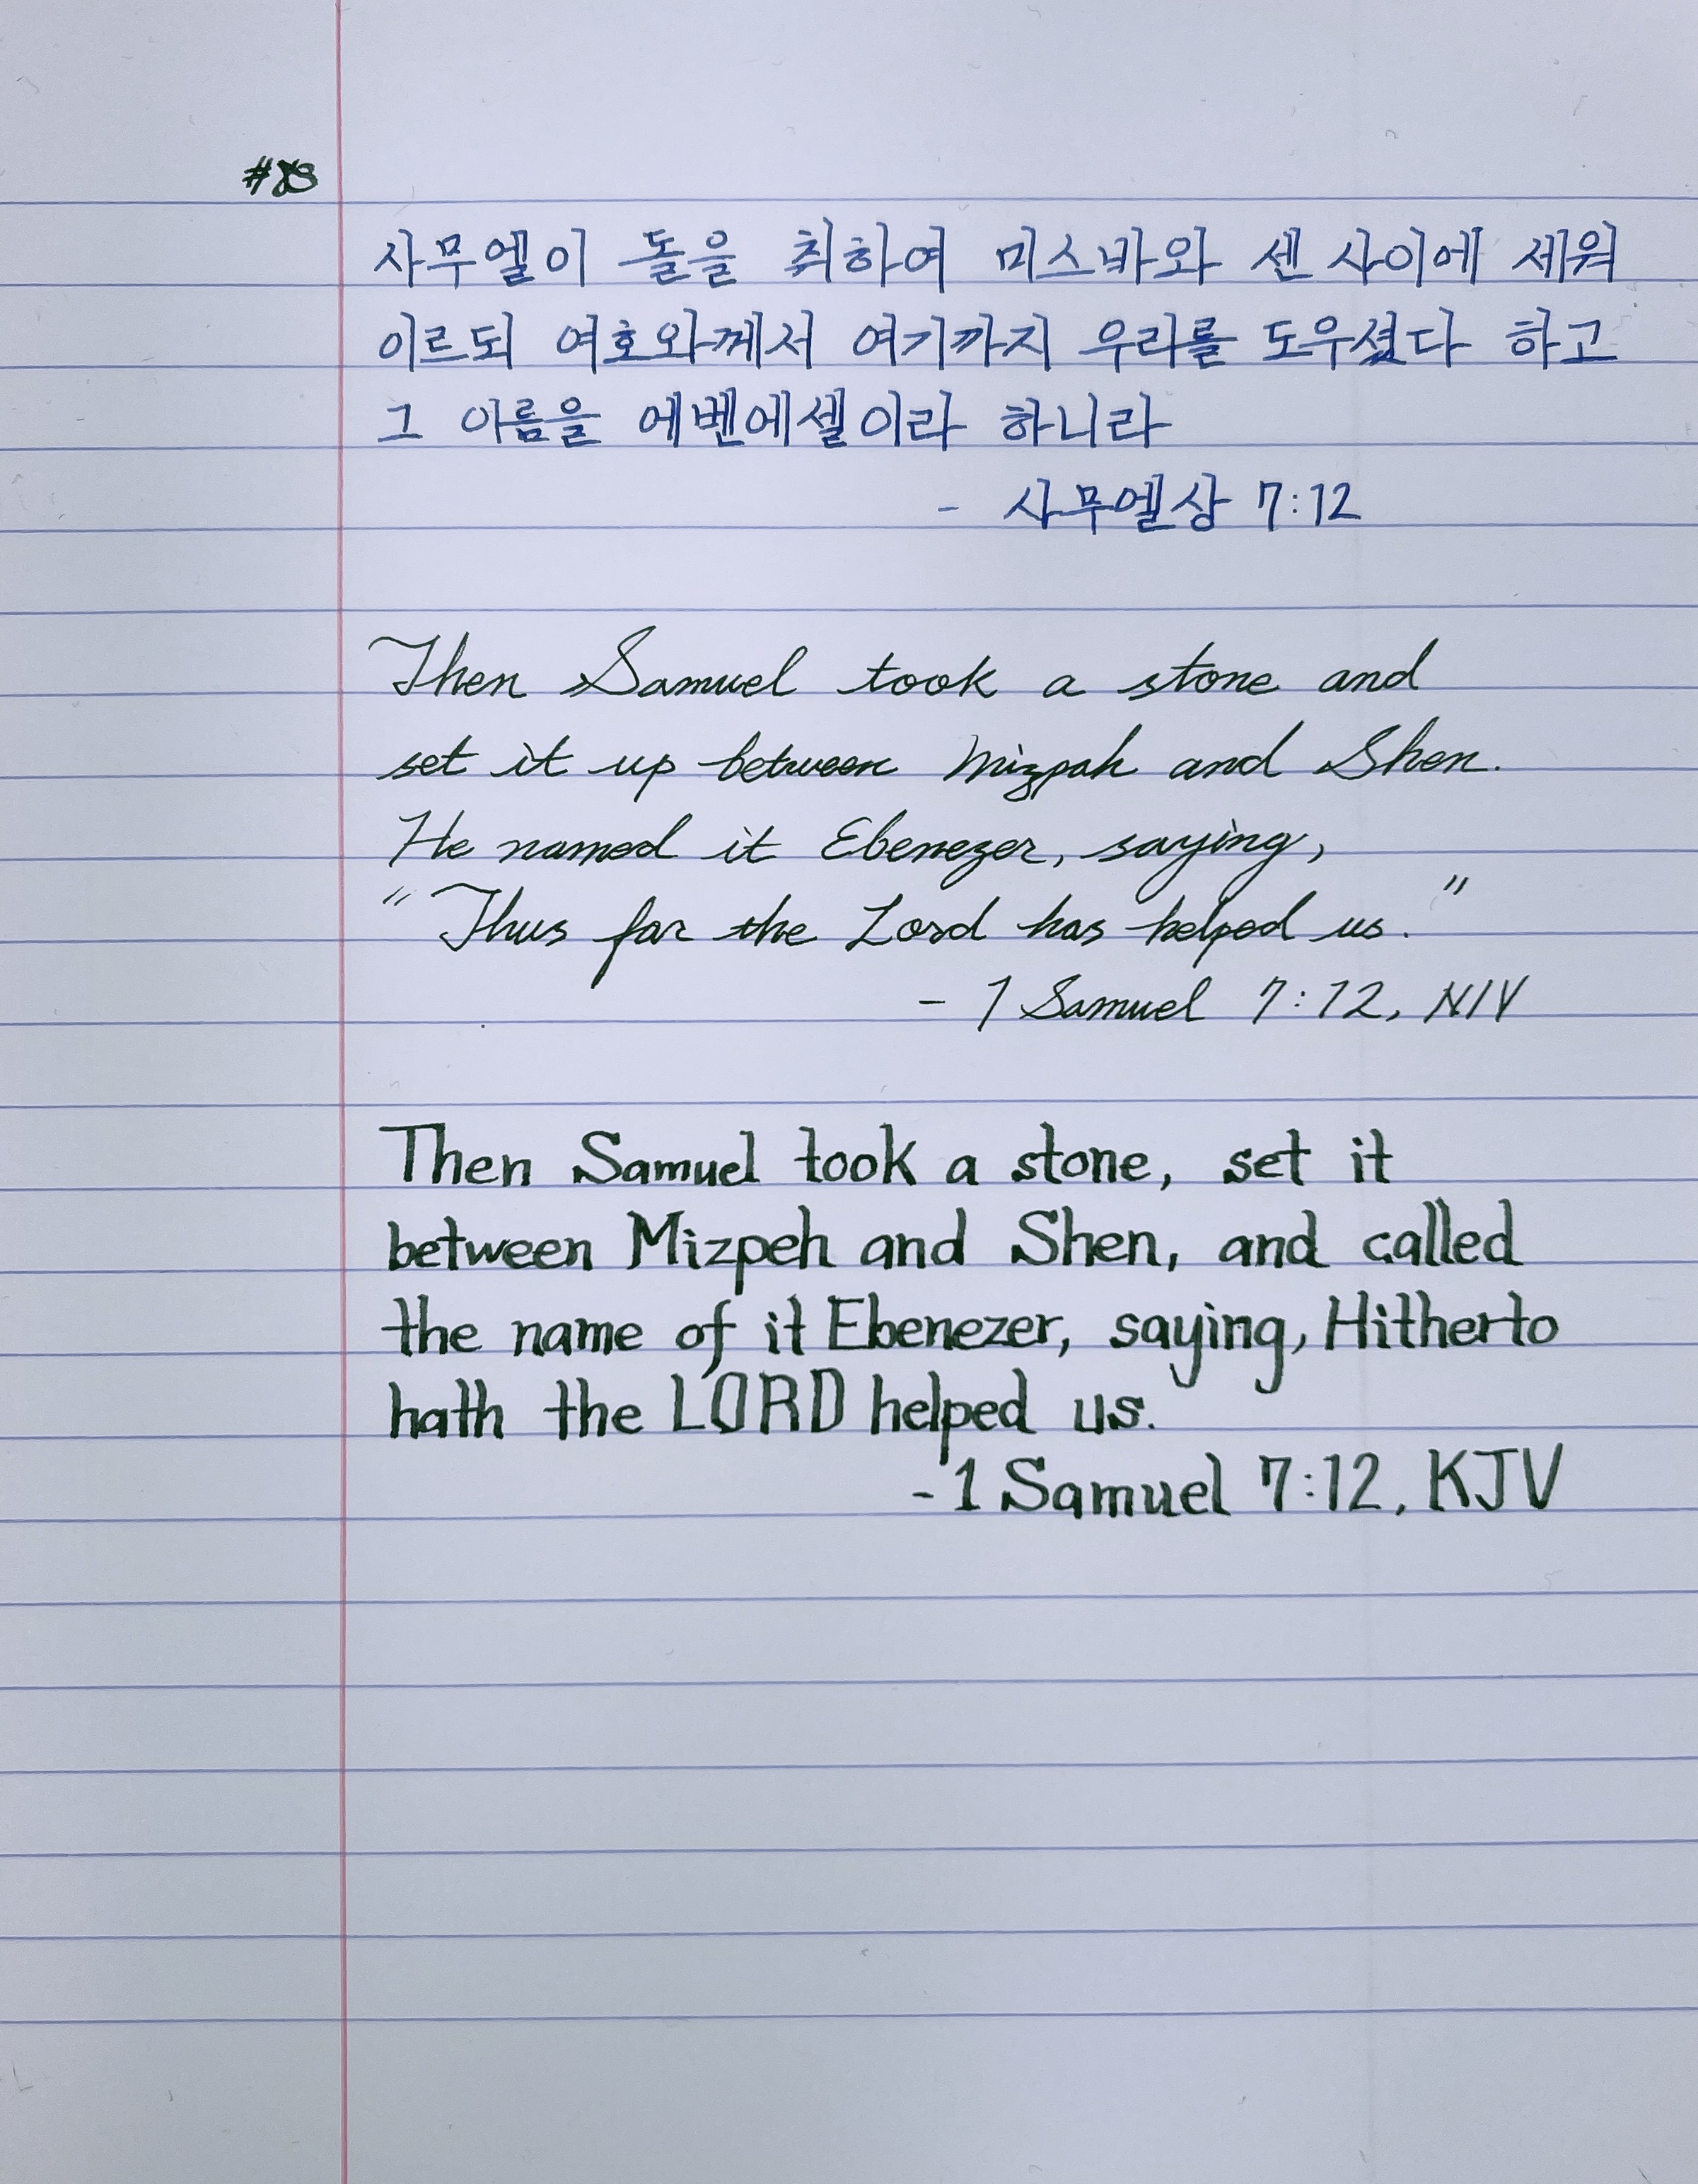 사무엘이 돌을 취하여 미스바와 센 사이에 세워
이르되 여호와께서 여기까지 우리를 도우셨다 하고
그 이름을 에벤에셀이라 하니라
- 사무엘상 7:12
Then Samuel took a stone and
set it up between Mizpah and Shen.
He named it Ebenezer, saying,
"Thus far the Lord has helped us."
- 1 Samuel 7:12, NIV
Then Samuel took a stone, set it
between Mizpeh and Shen, and called
the name of it Ebenezer, saying, Hitherto
hath the LORD helped us.
- 1 Samuel 7:12, KJV